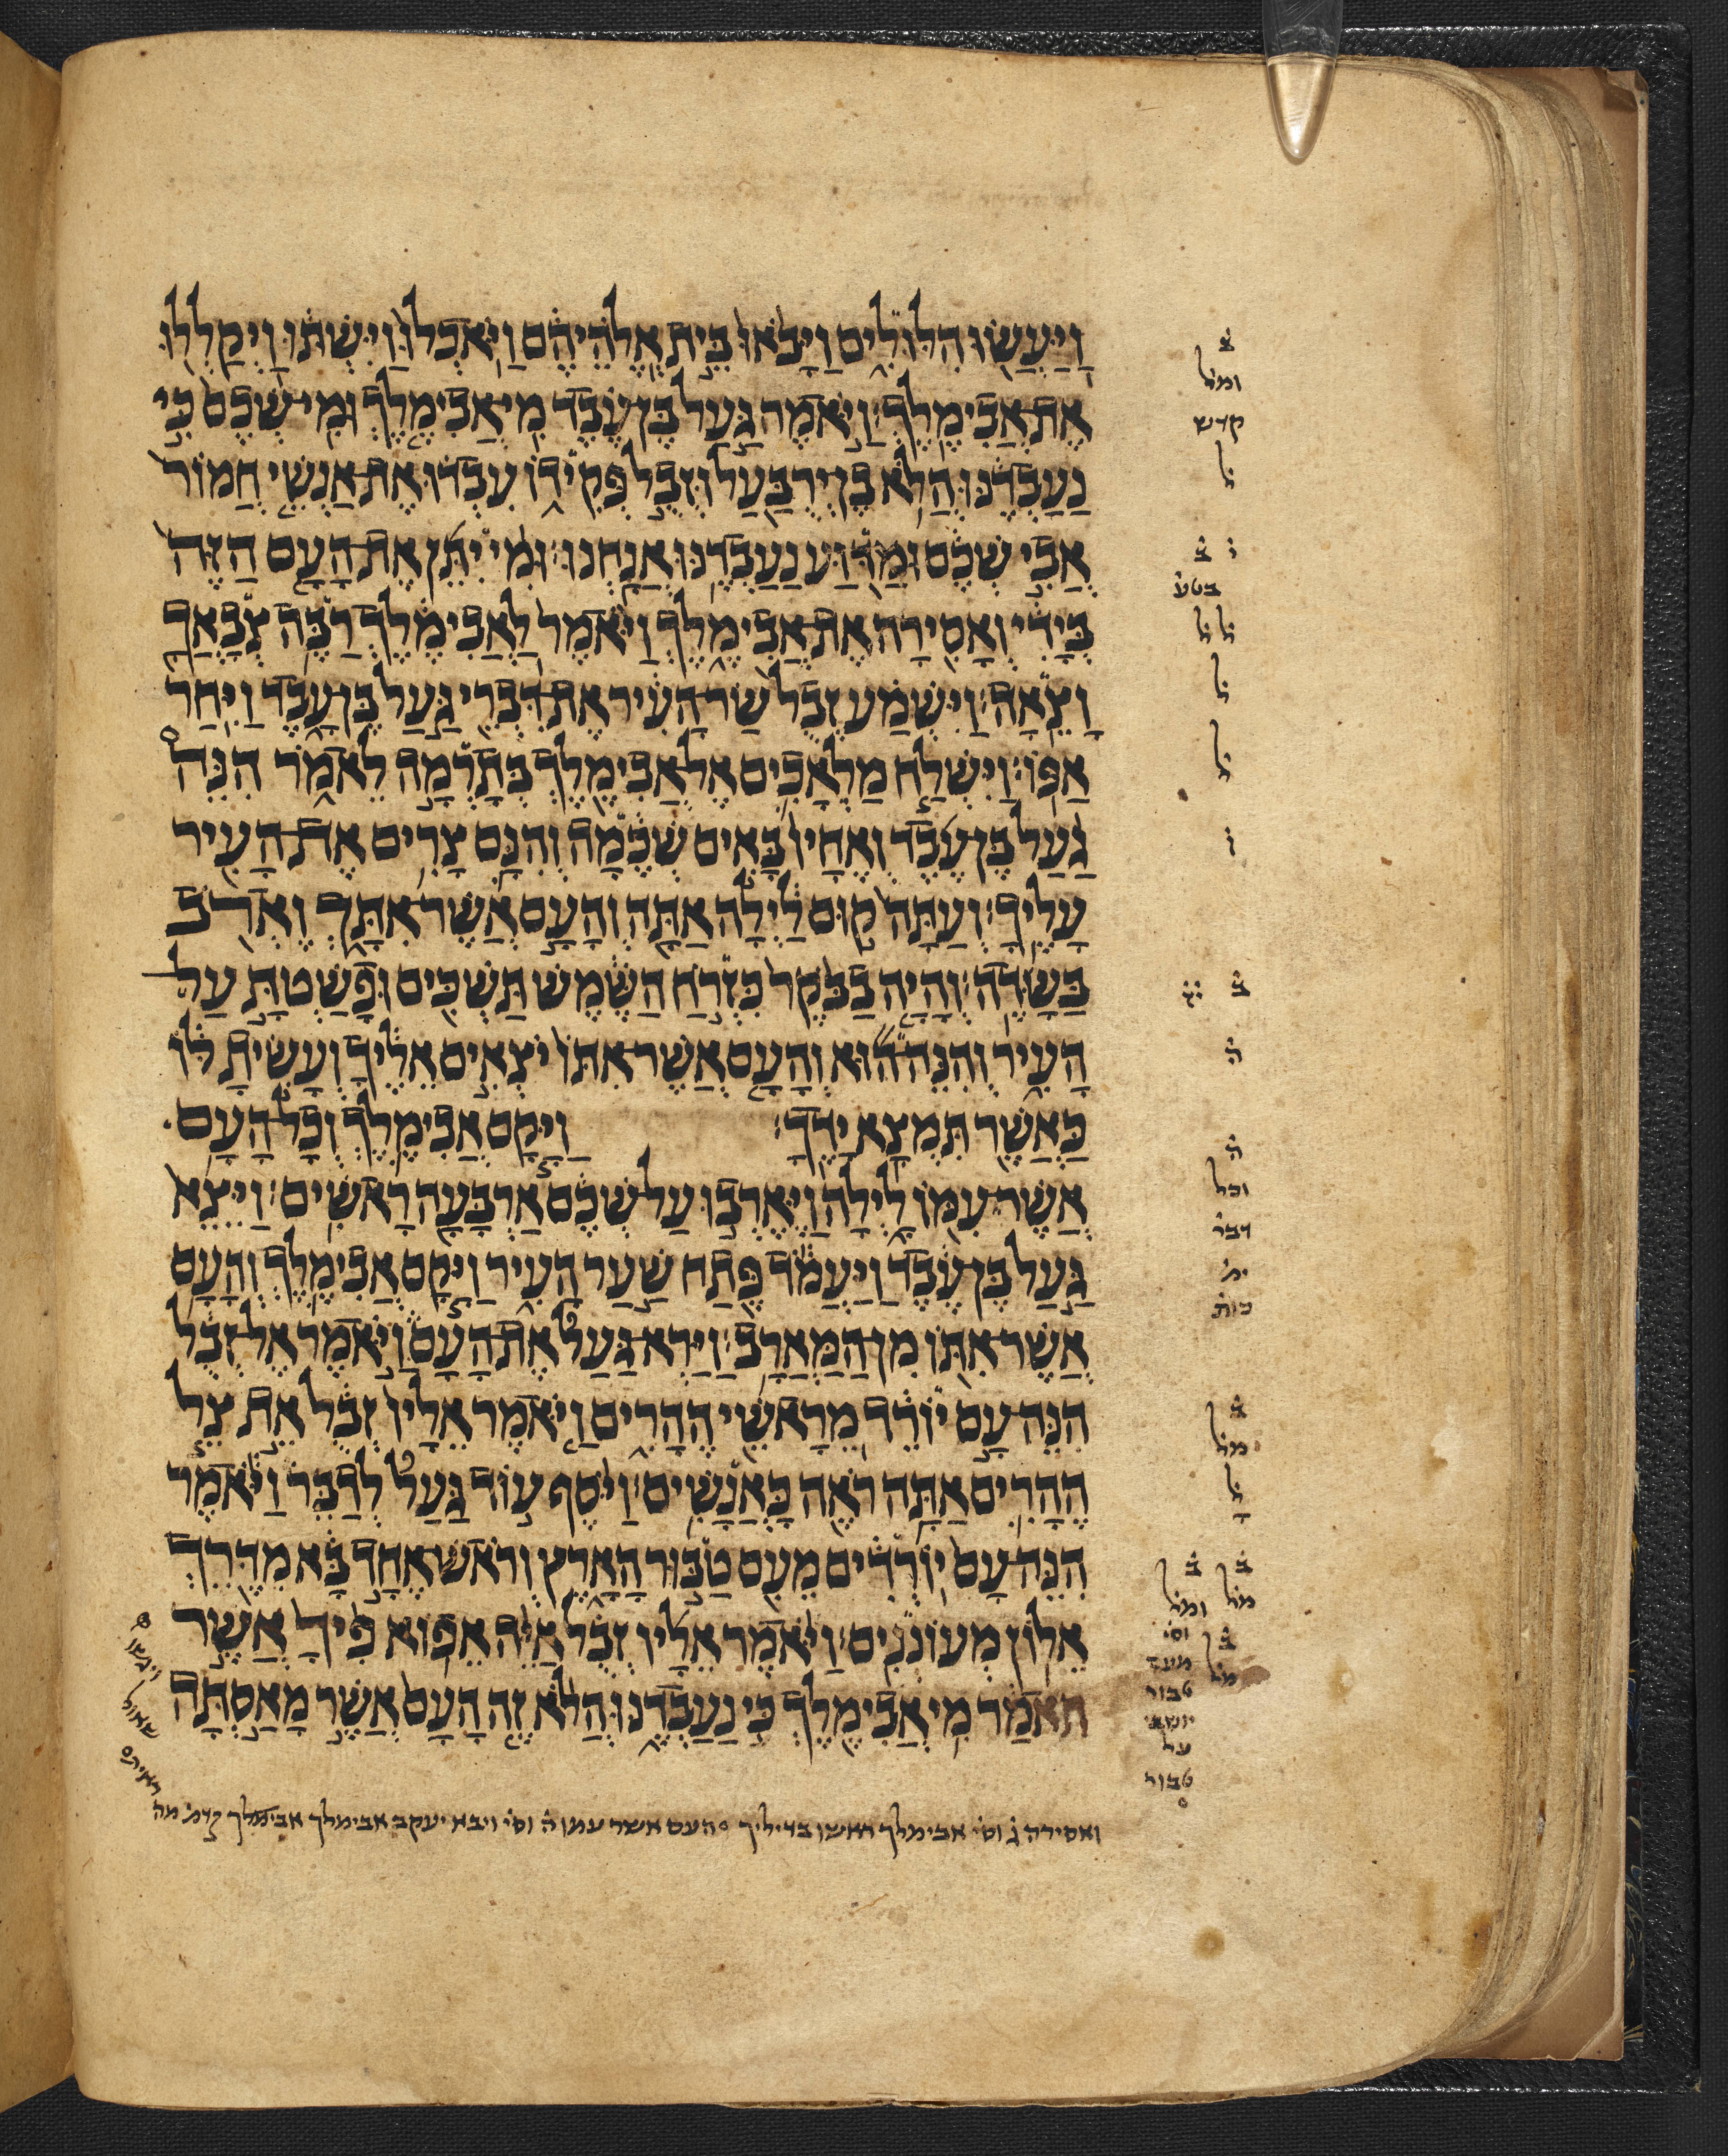 וַֽיַּעֲשׂוּ הִלּוּלִים וַיָּבֹאוּ בֵּית אֱלֹהֵיהֶם וַיֹּאכְלוּ וַיִּשְׁתּוּ וַיְקַלְלוּ
אֶת אֲבִימֶלֶךְ׃ וַיֹּאמֶר גַּעַל בֶּן עֶבֶד מִי אֲבִימֶלֶךְ וּמִי שְׁכֶם כִּי
נַעַבְדֶנּוּ הֲלֹא בֶן יְרֻבַּעַל וּזְבֻל פְּקִידוֹ עִבְדוּ אֶת אַנְשֵׁי חֲמוֹר
אֲבִי שְׁכֶם וּמַדּוּעַ נַעַבְדֶנּוּ אֲנָחְנוּ׃ וּמִי יִתֵּן אֶת הָעָם הַזֶּה
בְּיָדִי וְאָסִירָה אֶת אֲבִימֶלֶךְ וַיֹּאמֶר לַאֲבִימֶלֶךְ רַבֶּה צְבָאֲךָ
וָצֵאָה׃ וַיִּשְׁמַע זְבֻל שַׂר הָעִיר אֶת דִּבְרֵי גַּעַל בֶּן עָבֶד וַיִּחַר
אַפּוֹ׃ וַיִּשְׁלַח מַלְאָכִים אֶל אֲבִימֶלֶךְ בְּתָרְמָה לֵאמֹר הִנֵּה
גַעַל בֶּן עֶבֶד וְאֶחָיו בָּאִים שְׁכֶמָה וְהִנָּם צָרִים אֶת הָעִיר
עָלֶיךָ׃ וְעַתָּה קוּם לַיְלָה אַתָּה וְהָעָם אֲשֶׁר אִתָּךְ וֶאֱרֹב
בַּשָּׂדֶה׃ וְהָיָה בַבֹּקֶר כִּזְרֹחַ הַשֶּׁמֶשׁ תַּשְׁכִּים וּפָשַׁטְתָּ עַל
הָעִיר וְהִנֵּה הוּא וְהָעָם אֲשֶׁר אִתּוֹ יֹצְאִים אֵלֶיךָ וְעָשִׂיתָ לּוֹ
כַּאֲשֶׁר תִּמְצָא יָדֶךָ׃ וַיָּקָם אֲבִימֶלֶךְ וְכָל הָעָם
אֲשֶׁר עִמּוֹ לָיְלָה וַיֶּאֶרְבוּ עַל שְׁכֶם אַרְבָּעָה רָאשִׁים׃ וַיֵּצֵא
גַּעַל בֶּן עֶבֶד וַיַּעֲמֹד פֶּתַח שַׁעַר הָעִיר וַיָּקָם אֲבִימֶלֶךְ וְהָעָם
אֲשֶׁר אִתּוֹ מִן הַמַּאְרָב׃ וַיַּרְא גַּעַל אֶת הָעָם וַיֹּאמֶר אֶל זְבֻל
הִנֵּה עָם יוֹרֵד מֵרָאשֵׁי הֶהָרִים וַיֹּאמֶר אֵלָיו זְבֻל אֵת צֵל
הֶהָרִים אַתָּה רֹאֶה כָּאֲנָשִׁים׃ וַיֹּסֶף עוֹד גַּעַל לְדַבֵּר וַיֹּאמֶר
הִנֵּה עָם יוֹרְדִים מֵעִם טַבּוּר הָאָרֶץ וְרֹאשׁ אֶחָד בָּא מִדֶּרֶךְ
אֵלוֹן מְעוֹנְנִים׃ וַיֹּאמֶר אֵלָיו זְבֻל אַיֵּה אֵפוֹא פִיךָ אֲשֶׁר
תֹּאמַר מִי אֲבִימֶלֶךְ כִּי נַעַבְדֶנּוּ הֲלֹא זֶה הָעָם אֲשֶׁר מָאַסְתָּה
ב
ומל
קדש
ל
ז ב
בטע
ל ל
ל
ל
ז
ב
ה
ה
וכל
דבר
ית
כות
ב
מל
ל
ב ב
מל ומל
וסי
ב
מל
טבור
יושבי
על
טבור
ואסירה ג וסי אבימלך ראשו בדיליך העם אשר עמו ה וסי ויבא יעקב אבימלך אבימלך קדמ מה